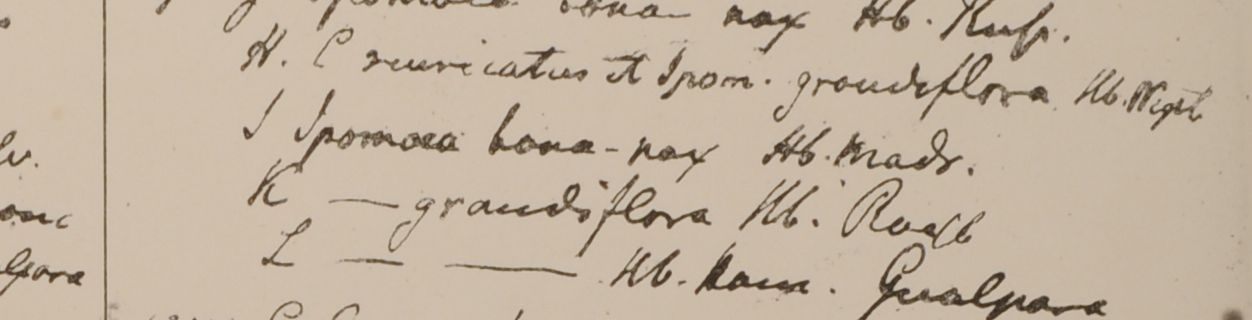 Ipomoea bona-nox Hb. Russ.
H. C muricatus et Ipom. grandiflora Hb. Wight
I Ipomoea bona-nox Hb. Madr.
lv.
K — grandiflora Hb. Roxb
L — — Hb. Ham. Gualpara
lpara